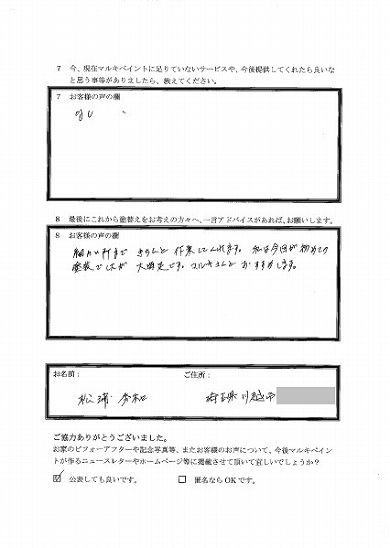 7 今、現在マルキペイントに足りていないサービスや、今後提供してくれたら良いな
と思う事等がありましたら、教えてください。
7 お客様の声の欄
8 最後にこれから塗替えをお考えの方々へ、一言アドバイスがあれば、お願いします。
8 お客様の声の欄
細かい所まで きちんと 作業してくれます。私は今回が初めての
塗装でしたが 大満足です。マルキさんを おすすめします。
お名前: ご住所:
松浦 埼玉県川越市
ご協力ありがとうございました。
お家のビフォーアフターや記念写真等、またお客様のお声について、今後マルキペイン
トが作るニュースレターやホームページ等に掲載させて頂いて宜しいでしょうか?
☑ 公表しても良いです。 □ 匿名ならOKです。